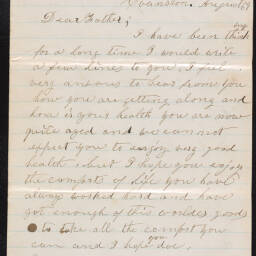 Evanston, August 9
Dear Father;
I have been thinking
for a long time I would write
a few lines to you. I feel
very anxious to hear from you
how you are getting along and
how is your health you are now
quite aged and we can not
expect you to enjoy very good
health but I hope you enjoy
the comfort of life you have
always worked hard and have
got enough of this worldes good
to take all the comfort you
can and I hope you doe.